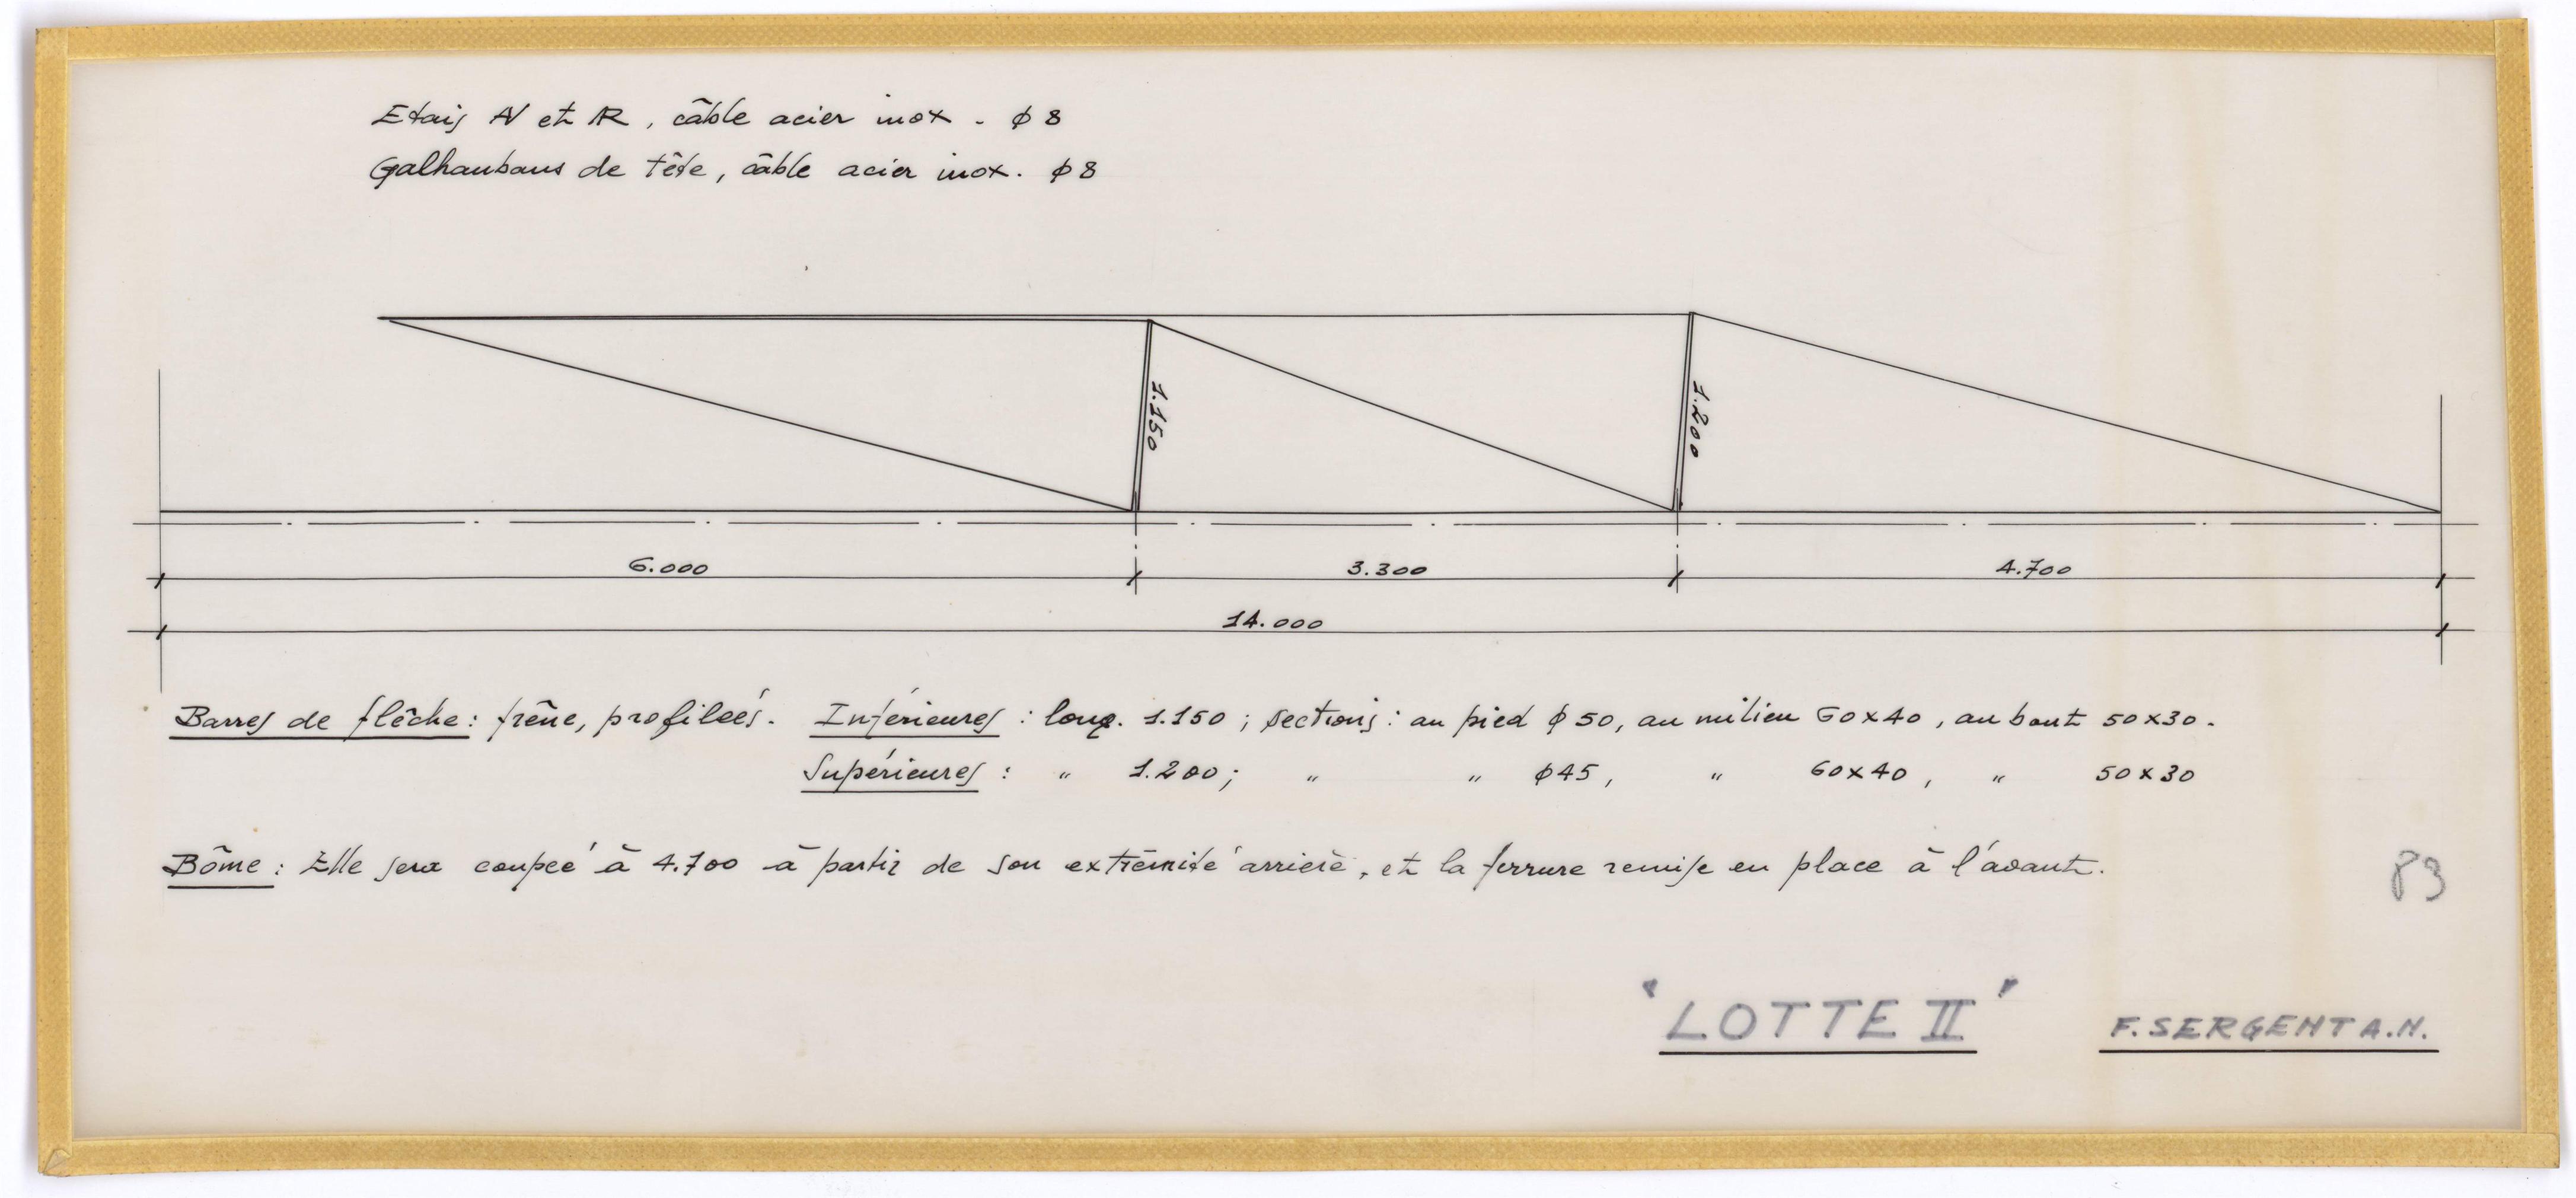 Etais AV et AR, câble acier inox. ϕ 8
Galhaubans de tête, câble acier inox. ϕ 8
1.150
1.200
6.000
3.300
4.700
14.000
Barres de flêche: frêne, profileés. Inférieures : long. 1.150 ; sections: au pied ϕ 50, au milieu 60x40, au bout 50x30.
Supérieures : " 1.200; " " ϕ45, " 60x40, " 50x30
Bôme: Elle sera coupeé à 4.700 à partir de son extrémité arrière, et la ferrure remise en place à l'avant.
83
"LOTTE II"
F. SERGENT A.N.